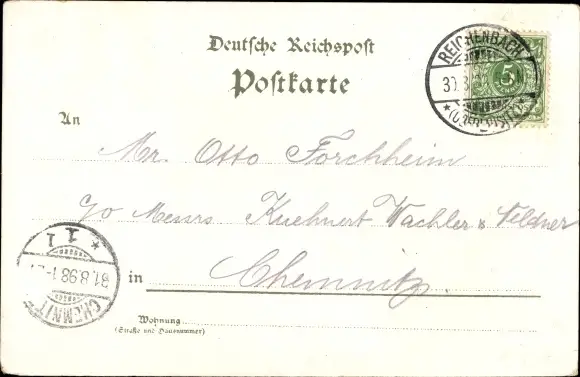 Deutsche Reichspost
Postkarte
REICHENBACH
30.8.
5
An
Mr. Otto Forchheim
c/o Messrs Kuehnert Wachler & Feldner
in Chemnitz.
1 1
31.8.98. 1-2
CHEMNITZ
Wohnung
(Straße und Hausnummer)